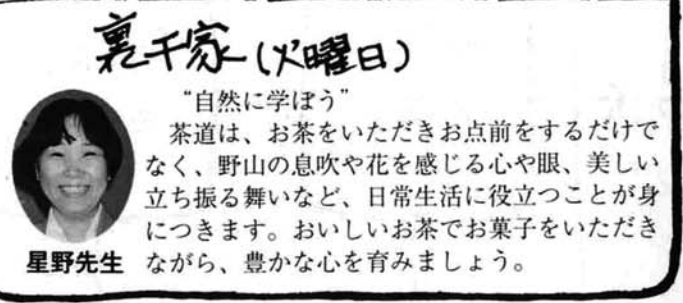 裏千家(火曜日)
“自然に学ぼう”
茶道は、お茶をいただきお点前をするだけで
なく、野山の息吹や花を感じる心や眼、美しい
立ち振る舞いなど、日常生活に役立つことが身
につきます。おいしいお茶でお菓子をいただき
ながら、豊かな心を育みましょう。
星野先生